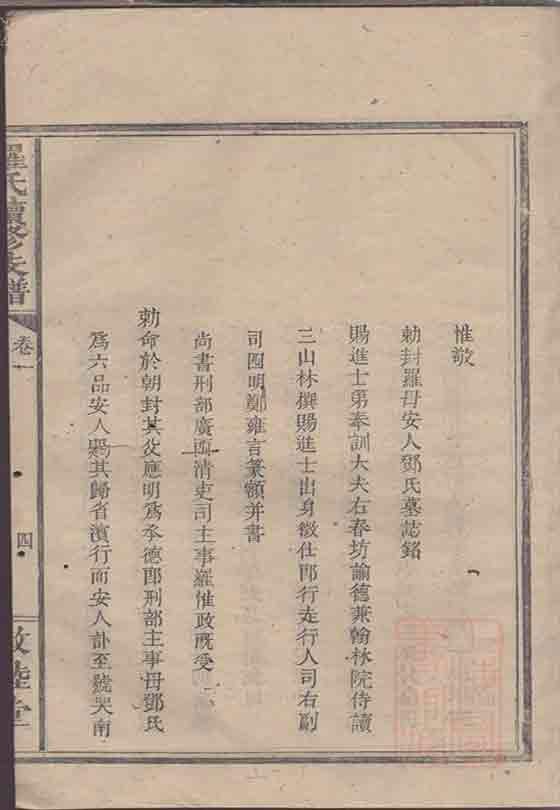 惟敬
勅封羅母安人鄧氏墓誌銘
賜進士弟奉訓大夫右春坊諭德兼翰林院侍讀
三山林撰賜進士出身徵仕郎行走行人司右副
司四明鄭雍言篆額并書
尚書刑部廣西清吏司主事羅惟政既受
勅命於朝封其父應明為承德郎刑部主事母鄧氏
為六品安人賜其歸省濱行而安人訃至號哭南
羅氏續修支譜
卷一
四
敦睦堂